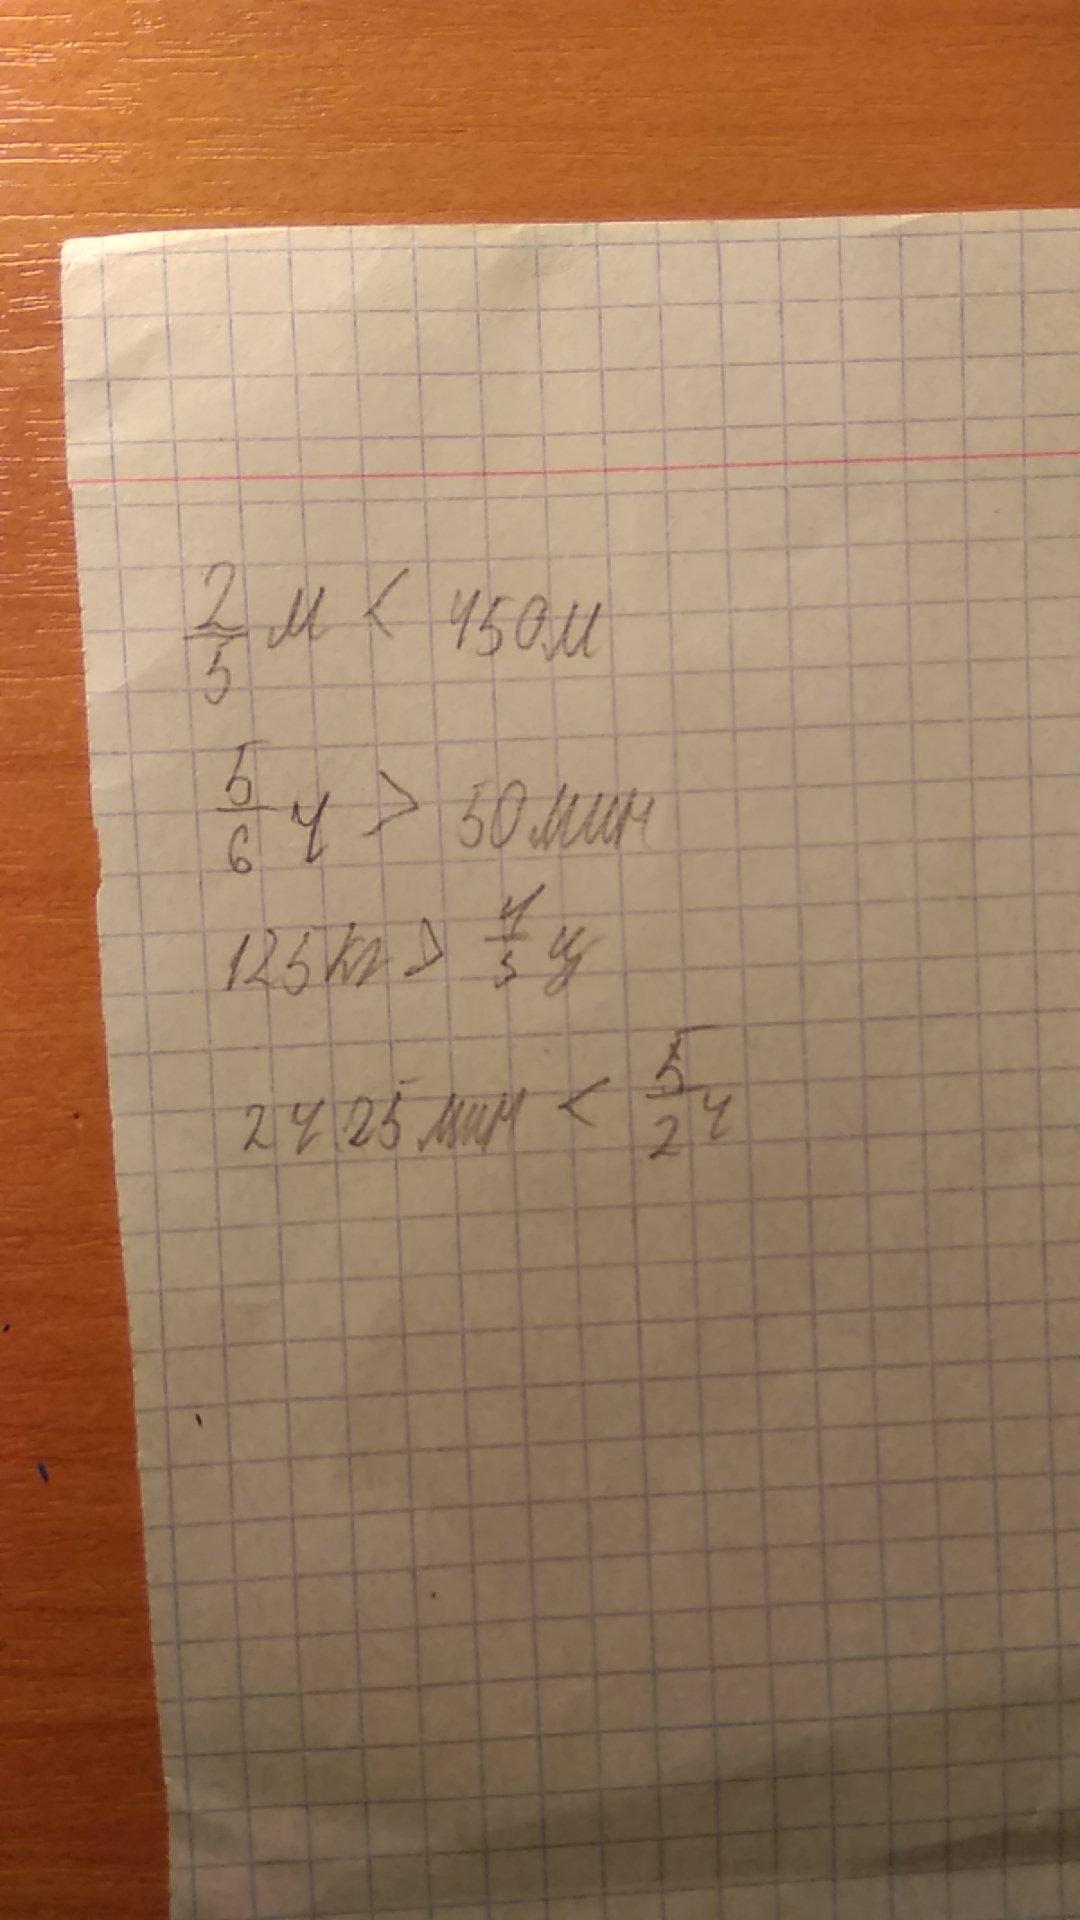 2/5 м < 450м
5/6 ч > 50 мин
125 кг > 4/5 ц
2ч 25 мин < 5/2 ч